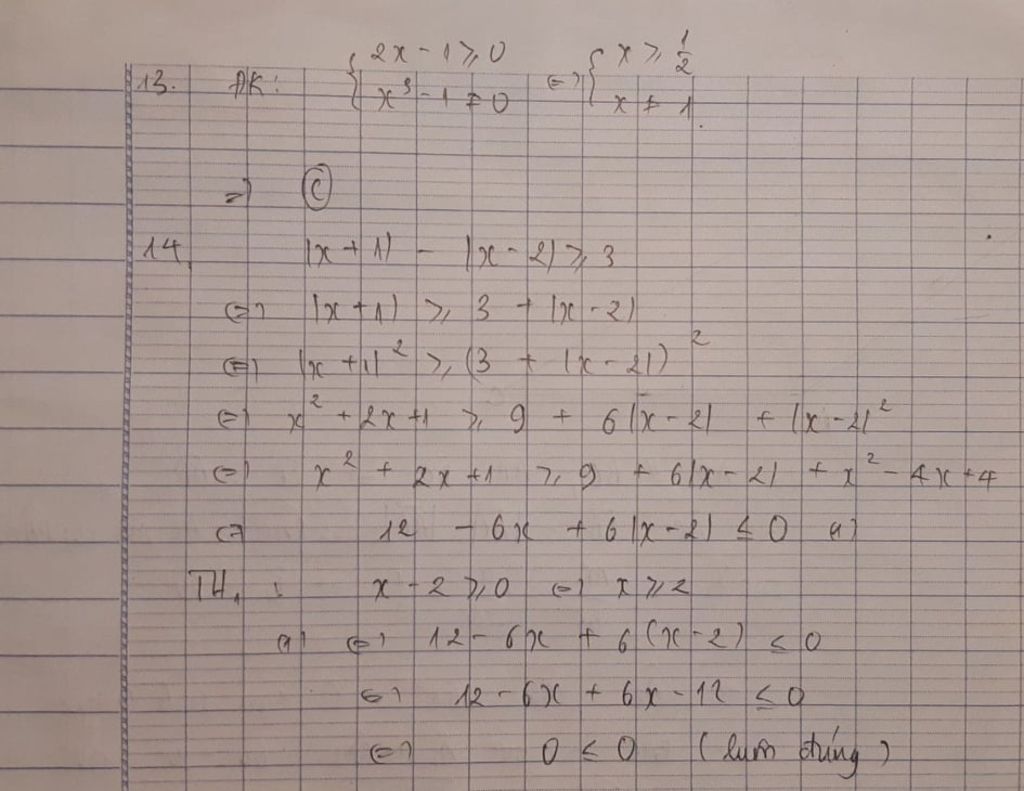 13. ĐK: { 2x - 1 ≥ 0 <=> { x ≥ 1/2
x³ - 1 ≠ 0 x ≠ 1.
=> Ⓒ
14. |x + 1| - |x - 2| ≥ 3
<=> |x + 1| ≥ 3 + |x - 2|
<=> |x + 1|² ≥ (3 + |x - 2|)²
<=> x² + 2x + 1 ≥ 9 + 6|x - 2| + |x - 2|²
<=> x² + 2x + 1 ≥ 9 + 6|x - 2| + x² - 4x + 4
<=> 12 - 6x + 6|x - 2| ≤ 0
TH₁ : x - 2 ≥ 0 <=> x ≥ 2
<=> 12 - 6x + 6(x - 2) ≤ 0
<=> 12 - 6x + 6x - 12 ≤ 0
<=> 0 ≤ 0 (luôn đúng)